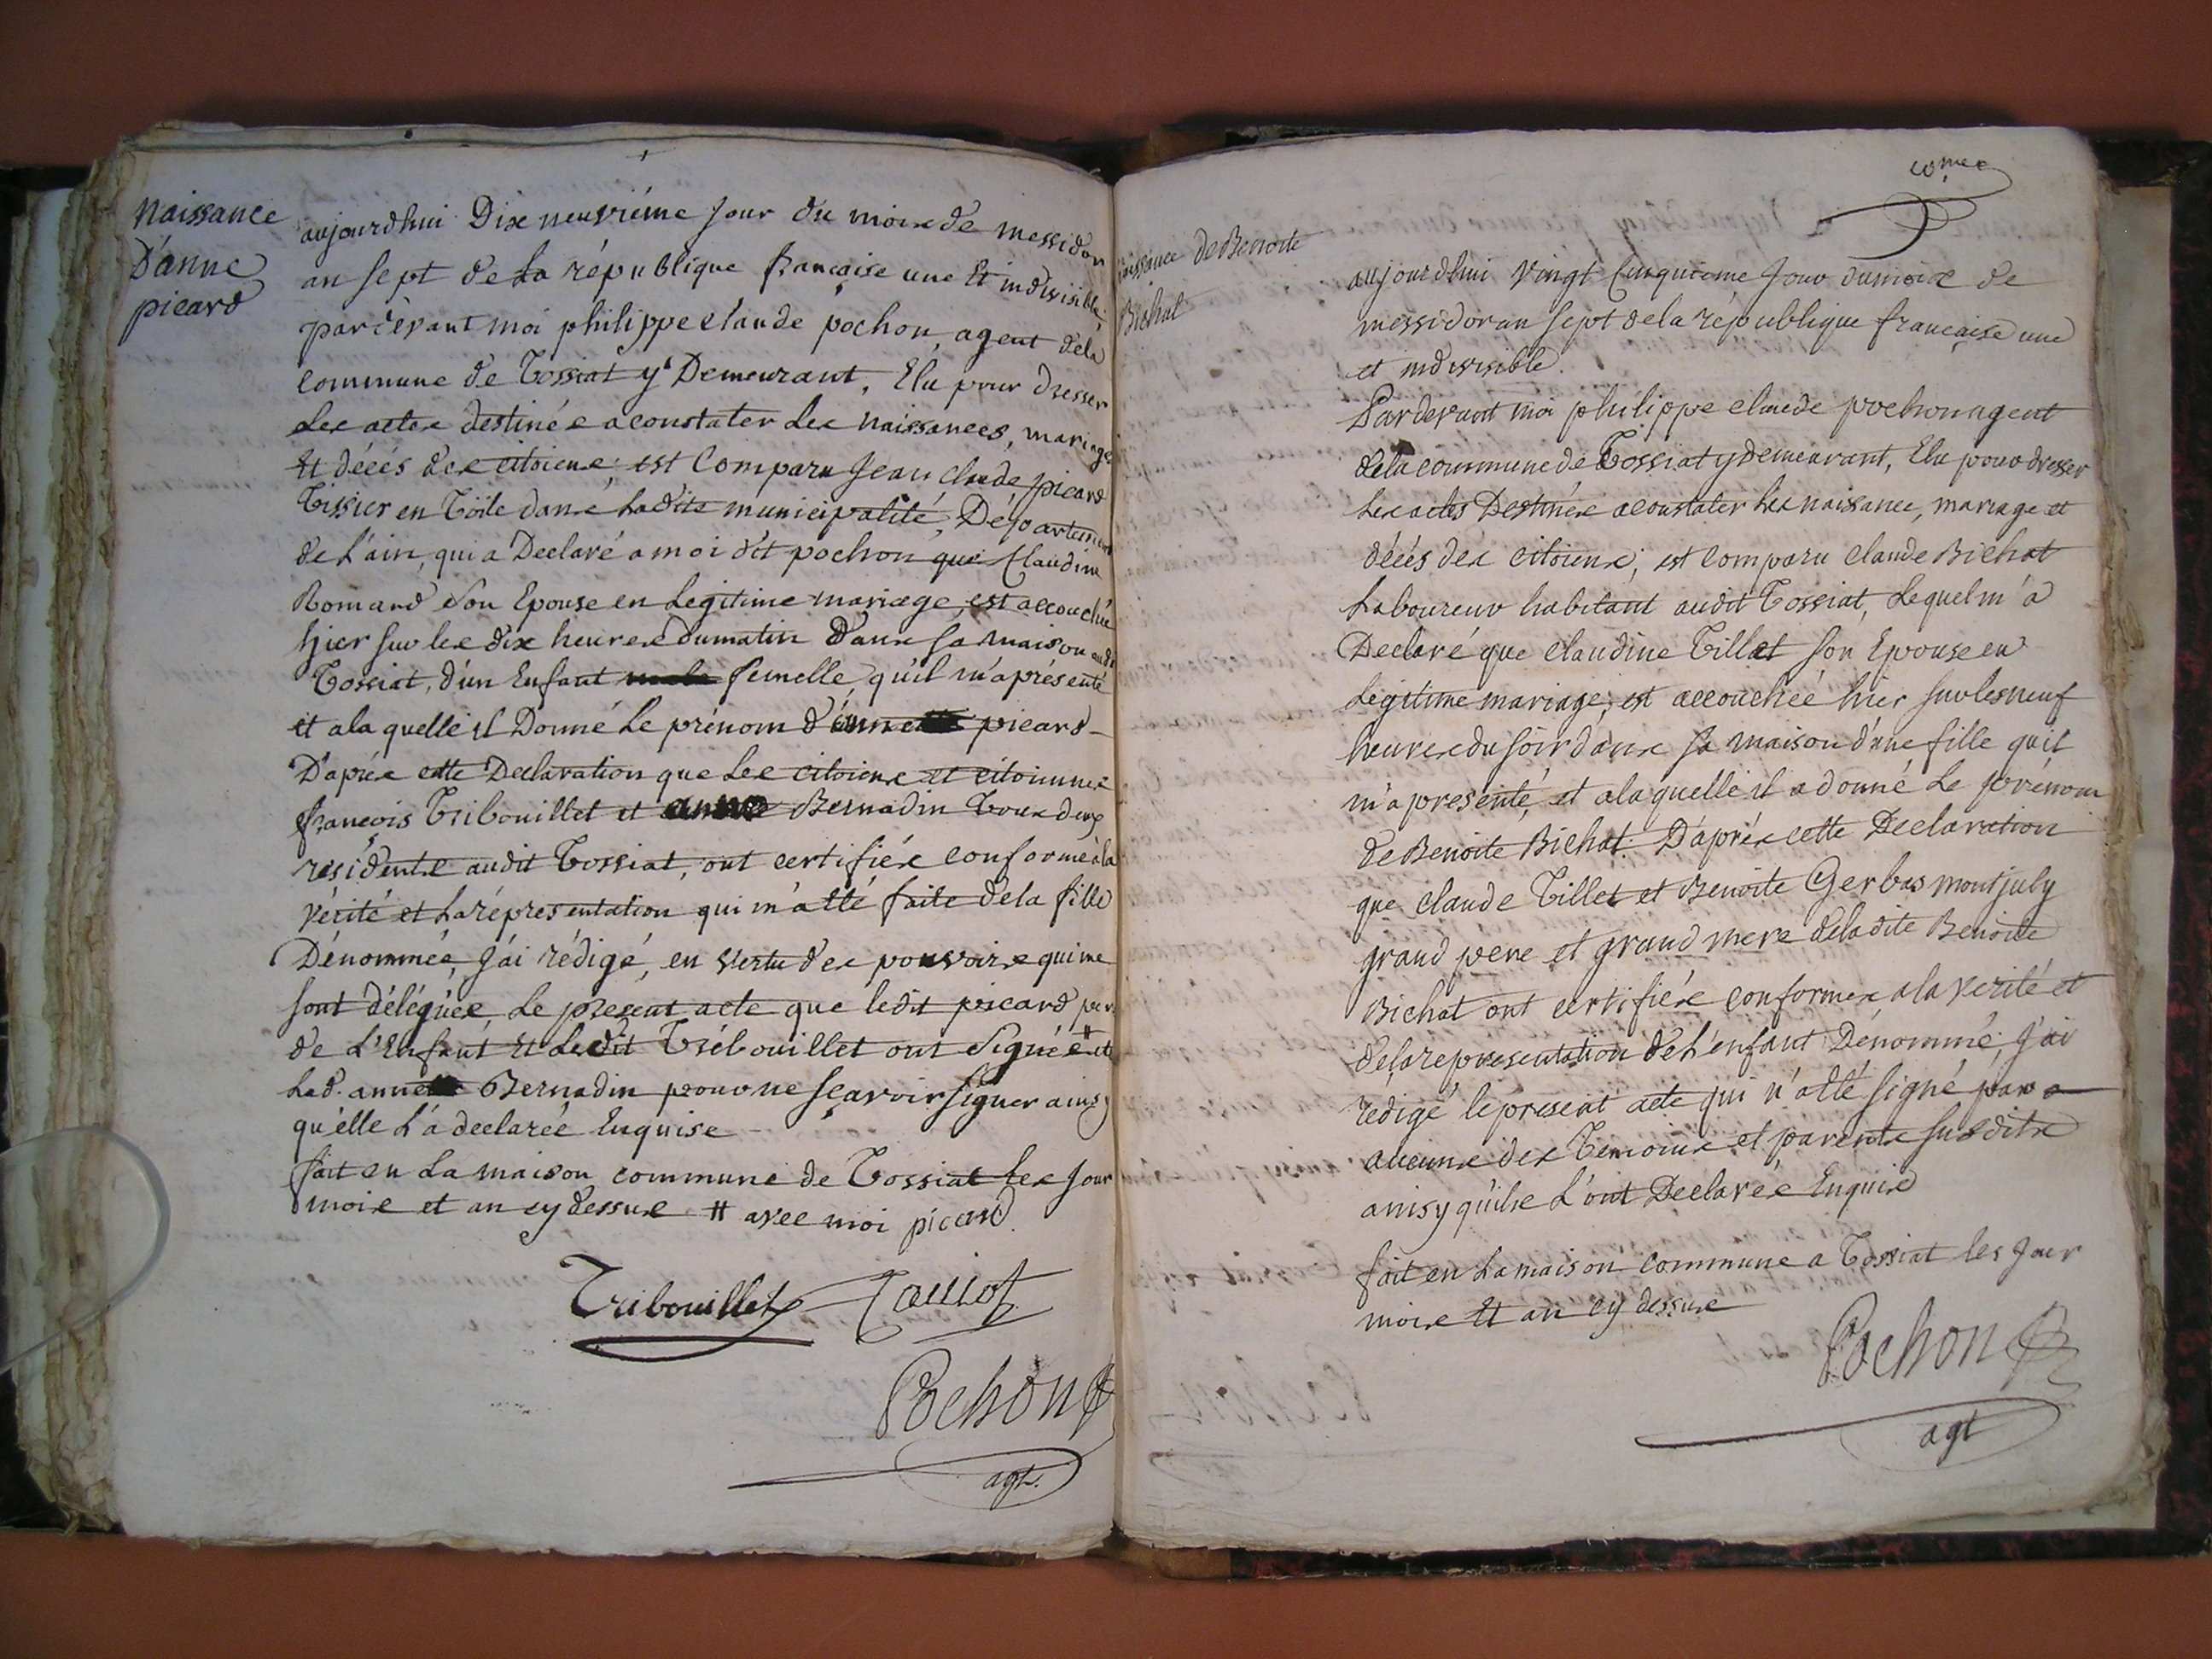 Naissance
D'anne
picard
aujourdhui Dix neuviéme Jour du mois de messidor
an sept de La république française une Et indivisible,
pardevant moi philippe claude pochon, agent dela
commune de Tossiat y Demeurant, Elu pour dresser
Les actes destinés a constater Les naissances, mariages
Et décés des citoiens, est Comparu Jean claude picard
Tissier en Toile dans Ladite municipalité, Département
de L'ain, qui a Declaré a moi dit pochon que Claudine
Romand son Epouse en Legitime mariage, est accouchée
hier sur les dix heures du matin dans sa maison audit
Tossiat, d'un Enfant femelle qu'il m'a présenté
et a la quelle il Donné Le prénom d'anne picard
D'aprés cette Declaration que Les citoiens et citoiennes
françois Tribouillet et anne Bernadin Tous deux
résidents audit Tossiat, ont certifiés conforme à la
vérité et La représentation qui m'a été faite dela fille
Dénommée, J'ai rédigé, en vertu des pouvoirs qui me
sont délégués, Le present acte que ledit picard per
de L'Enfant Et Ledit Trébouillet ont Signés # et
Lad. anne Bernadin pour ne sçavoir signer ainsy
qu'élle L'a declarée Enquise
fait en La maison commune de Tossiat les Jour
mois et an cy dessus # avec moi picard.
Tribouillet
Pochon
agt.
comee
Naissance de Benoite
Bichat
aujourdhui vingt Cinquieme Jour du mois de
messidor an sept de la république française une
et indivisible.
Pardevant moi philippe claude pochon agent
dela commune de Tossiat y demeurant, Elu pour dresser
Les actes Destinés a constater Les naissance, mariage et
décés des citoiens; est comparu claude Bichat
Laboureur habitant audit Tossiat, Lequel m'a
Declaré que claudine Tillet son Epouse en
Legitime mariage, est accouchée hier sur les neuf
heures du soir dans sa maison d'une fille qu'il
m'a presenté, et a la quelle il a donné Le prénom
de Benoite Bichat. D'aprés cette Declaration
que claude Tillet et Benoite Gerbas montjuly
grand pere et grand mere de ladite Benoite
Bichat ont certifiés conformes a la verité et
de la representation de L'enfant Dénommé, J'ai
rédigé le present acte qui n'a été signé par
aucuns des Temoins et parents susdits
ainsy qu'ils L'ont Declarés Enquis
fait en La maison commune a Tossiat les Jour
mois Et an cy dessus
Pochon
agt